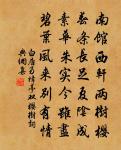 南館西軒兩樹櫻
春條長足夏陰成
素華朱實今雖盡
碧葉風來別有情
白居易樟亭雙櫻樹詞